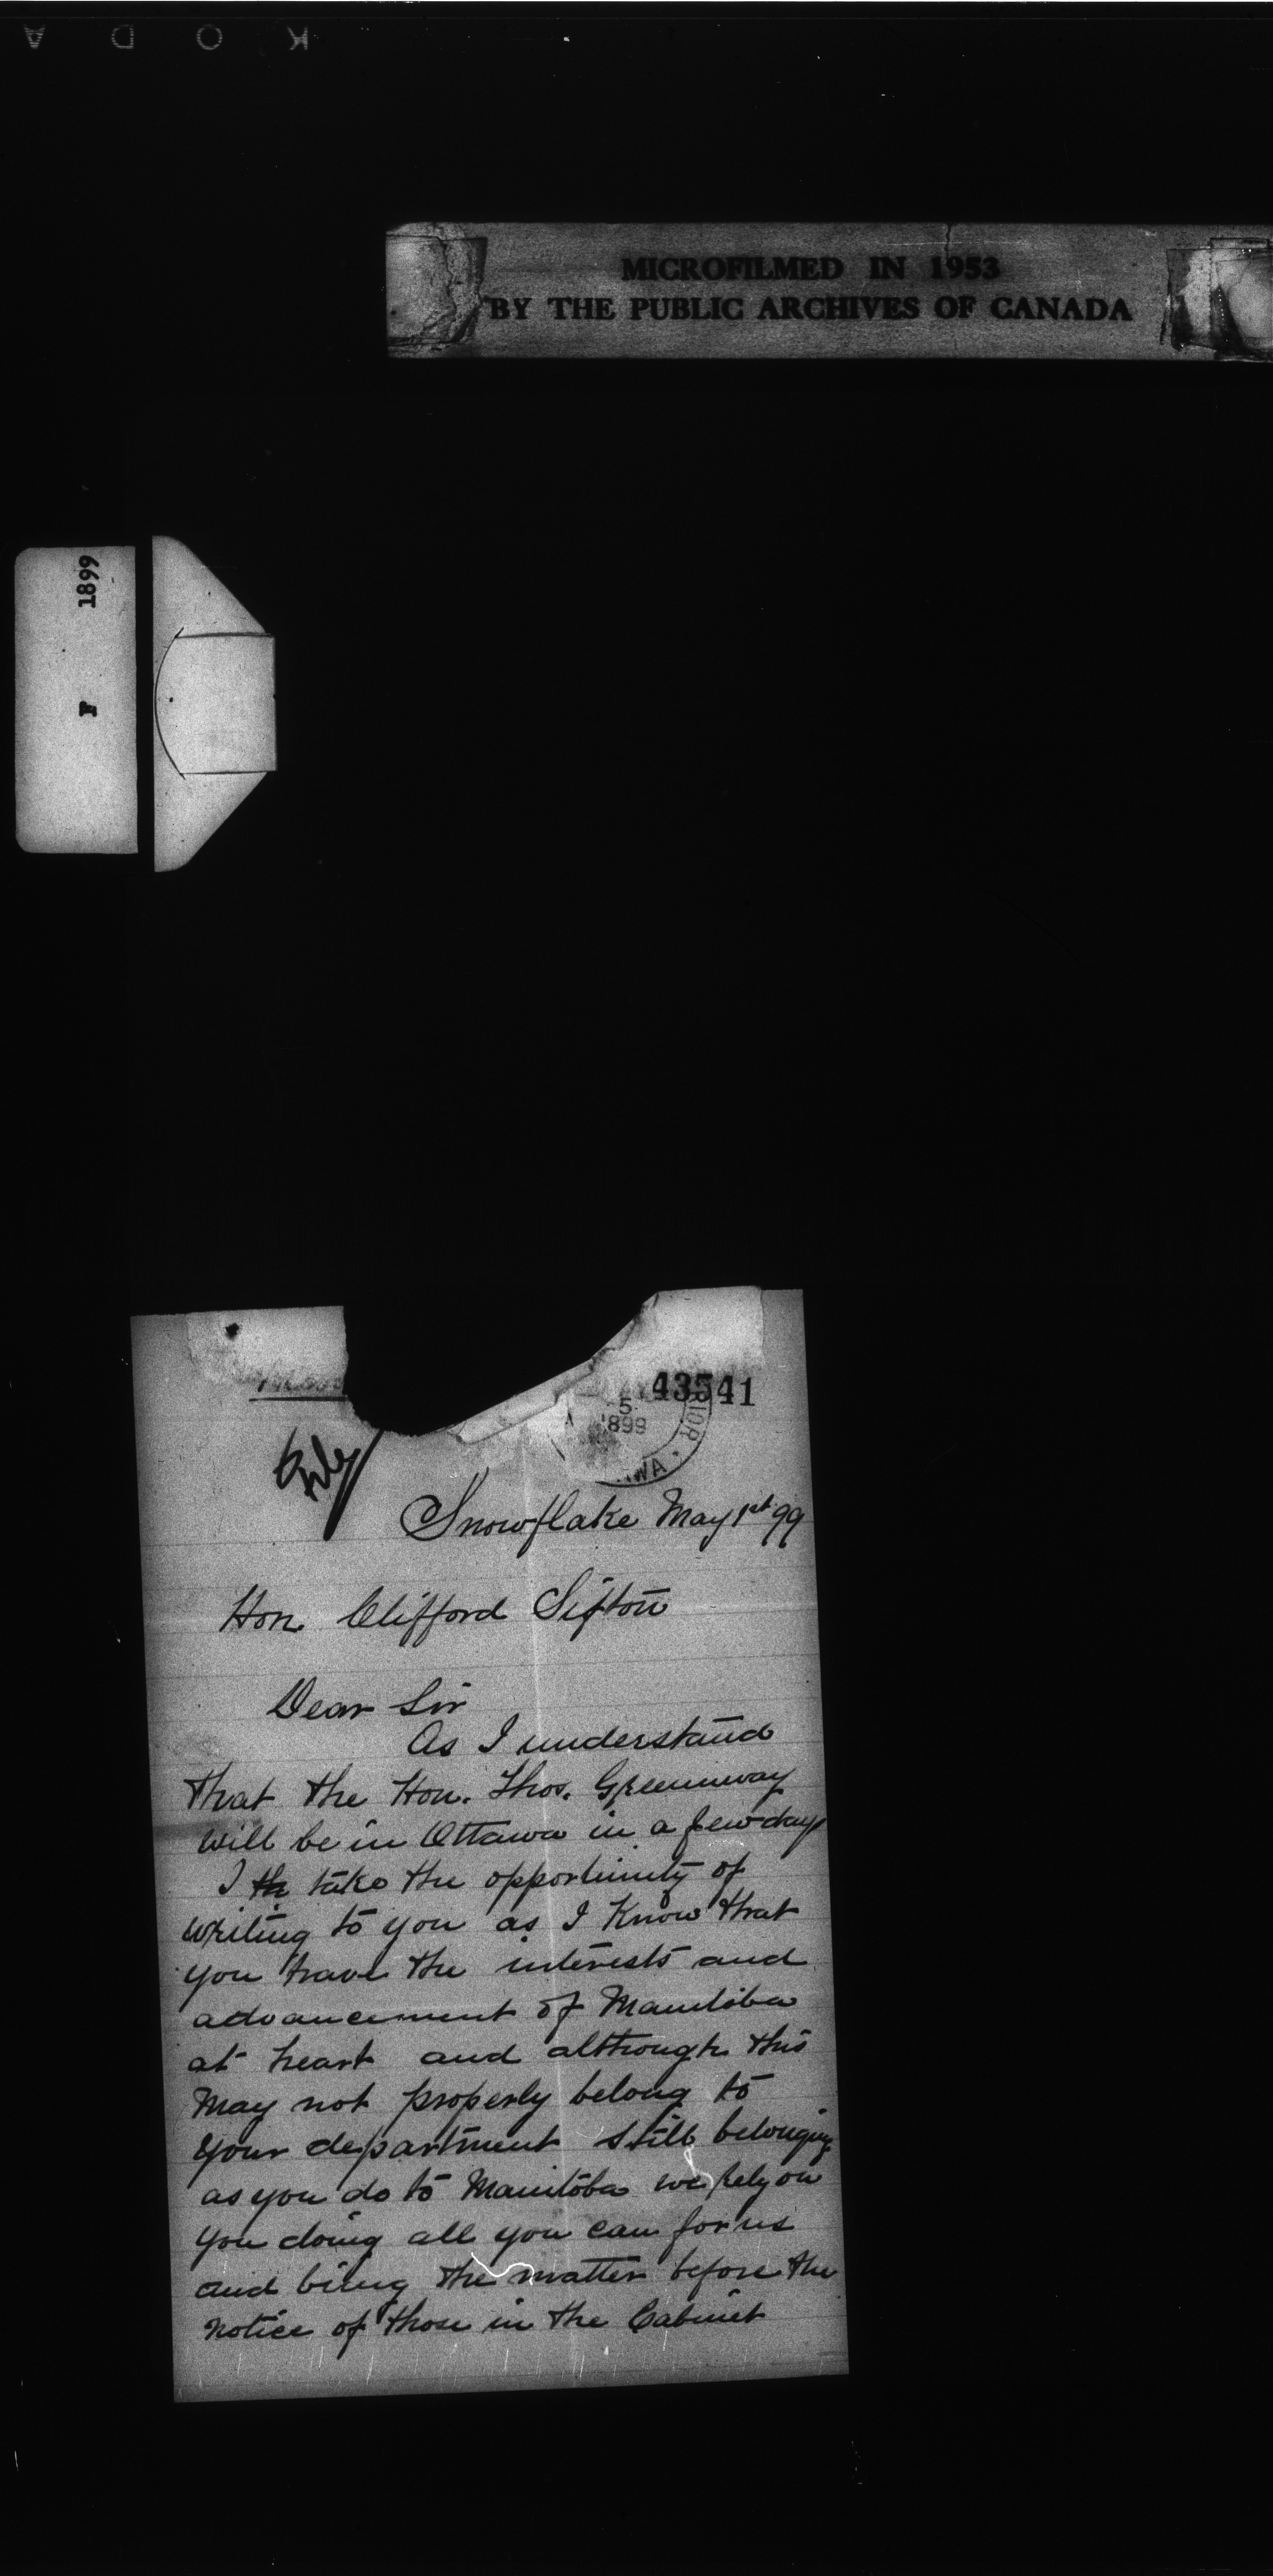 KODA
MICROFILMED IN 1953
BY THE PUBLIC ARCHIVES OF CANADA
F 1899
43541
5
1899
File
Snowflake May 1st 99
Hon. Clifford Sifton
Dear Sir
As I understand
that the Hon. Thos. Greenway
will be in Ottawa in a few days
I th take the opportunity of
writing to you as I Know that
you have the interests and
advancement of Manitoba
at heart and although this
May not properly belong to
your department still belonging
as you do to Manitoba we rely on
you doing all you can for us
and bring the matter before the
notice of those in the Cabinet